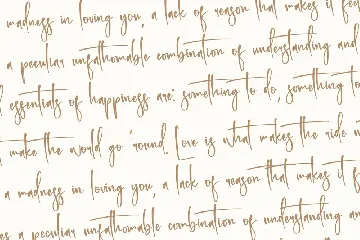 madness in loving you, a lack of reason that makes it feel
a peculiar unfathomable combination of understanding and
essentials of happiness are: something to do, something to
make the world go 'round. Love is what makes the ride
a madness in loving you, a lack of reason that makes it f
as a peculiar unfathomable combination of understanding an